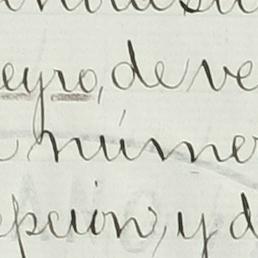 eyro, de ve
núme
epción, y d